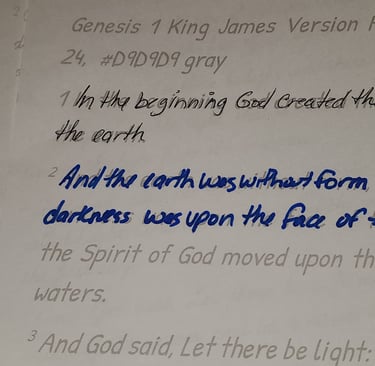 Genesis 1 King James Version
24, #D9D9D9 gray
1 In the beginning God created
the earth
2 And the earth was without form,
darkness was upon the face of
the Spirit of God moved upon
waters.
3 And God said, Let there be light: